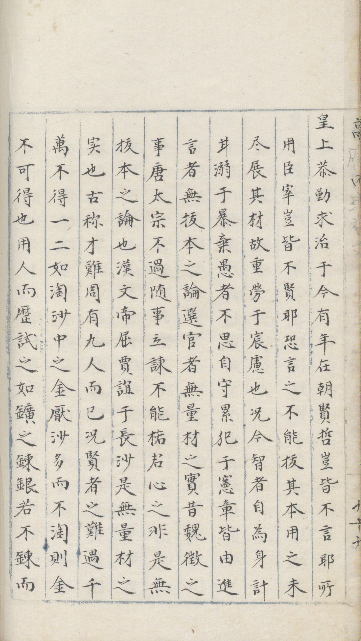 皇上恭勤求治于今有年在朝賢哲豈皆不言耶所
用臣宰豈皆不賢耶恐言之不能拔其本用之未
尽展其材故重劳于宸慮也况今智者自為身計
甘溺于暴棄愚者不思自守累犯于憲章皆由進
言者無拔本之論選官者無量材之實昔魏徵之
事唐太宗不過随事立諫不能格君心之非是無
拔本之論也漢文帝屈賈誼于長沙是無量材之
实也古称才難周有九人而已况賢者之難過千
萬不得一二如淘沙中之金厭沙多而不淘則金
不可得也用人而歷試之如鑛之鍊銀若不鍊而